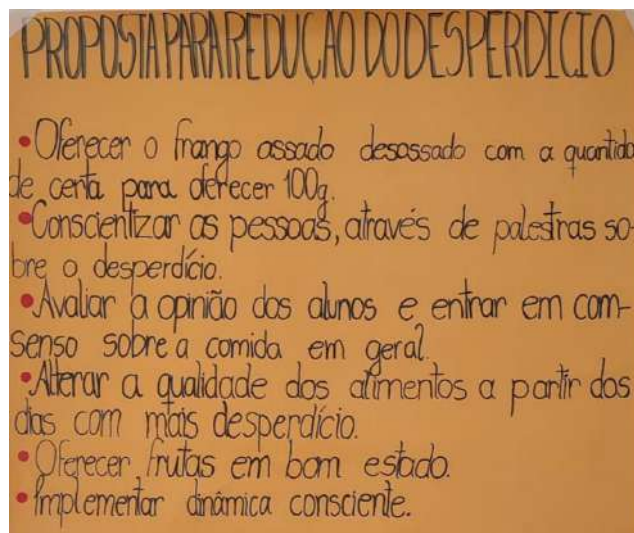 PROPOSTA PARA REDUÇAO DO DESPERDICIO
• Oferecer o frango assado desossado com a quantida
de certa para oferecer 100g.
• Conscientizar as pessoas, através de palestras so-
bre o desperdício.
• Avaliar a opinião dos alunos e entrar em com-
senso sobre a comida em geral.
• Alterar a qualidade dos alimentos a partir dos
dias com mais desperdício.
• Oferecer frutas em bom estado.
• Implementar dinâmica consciente.